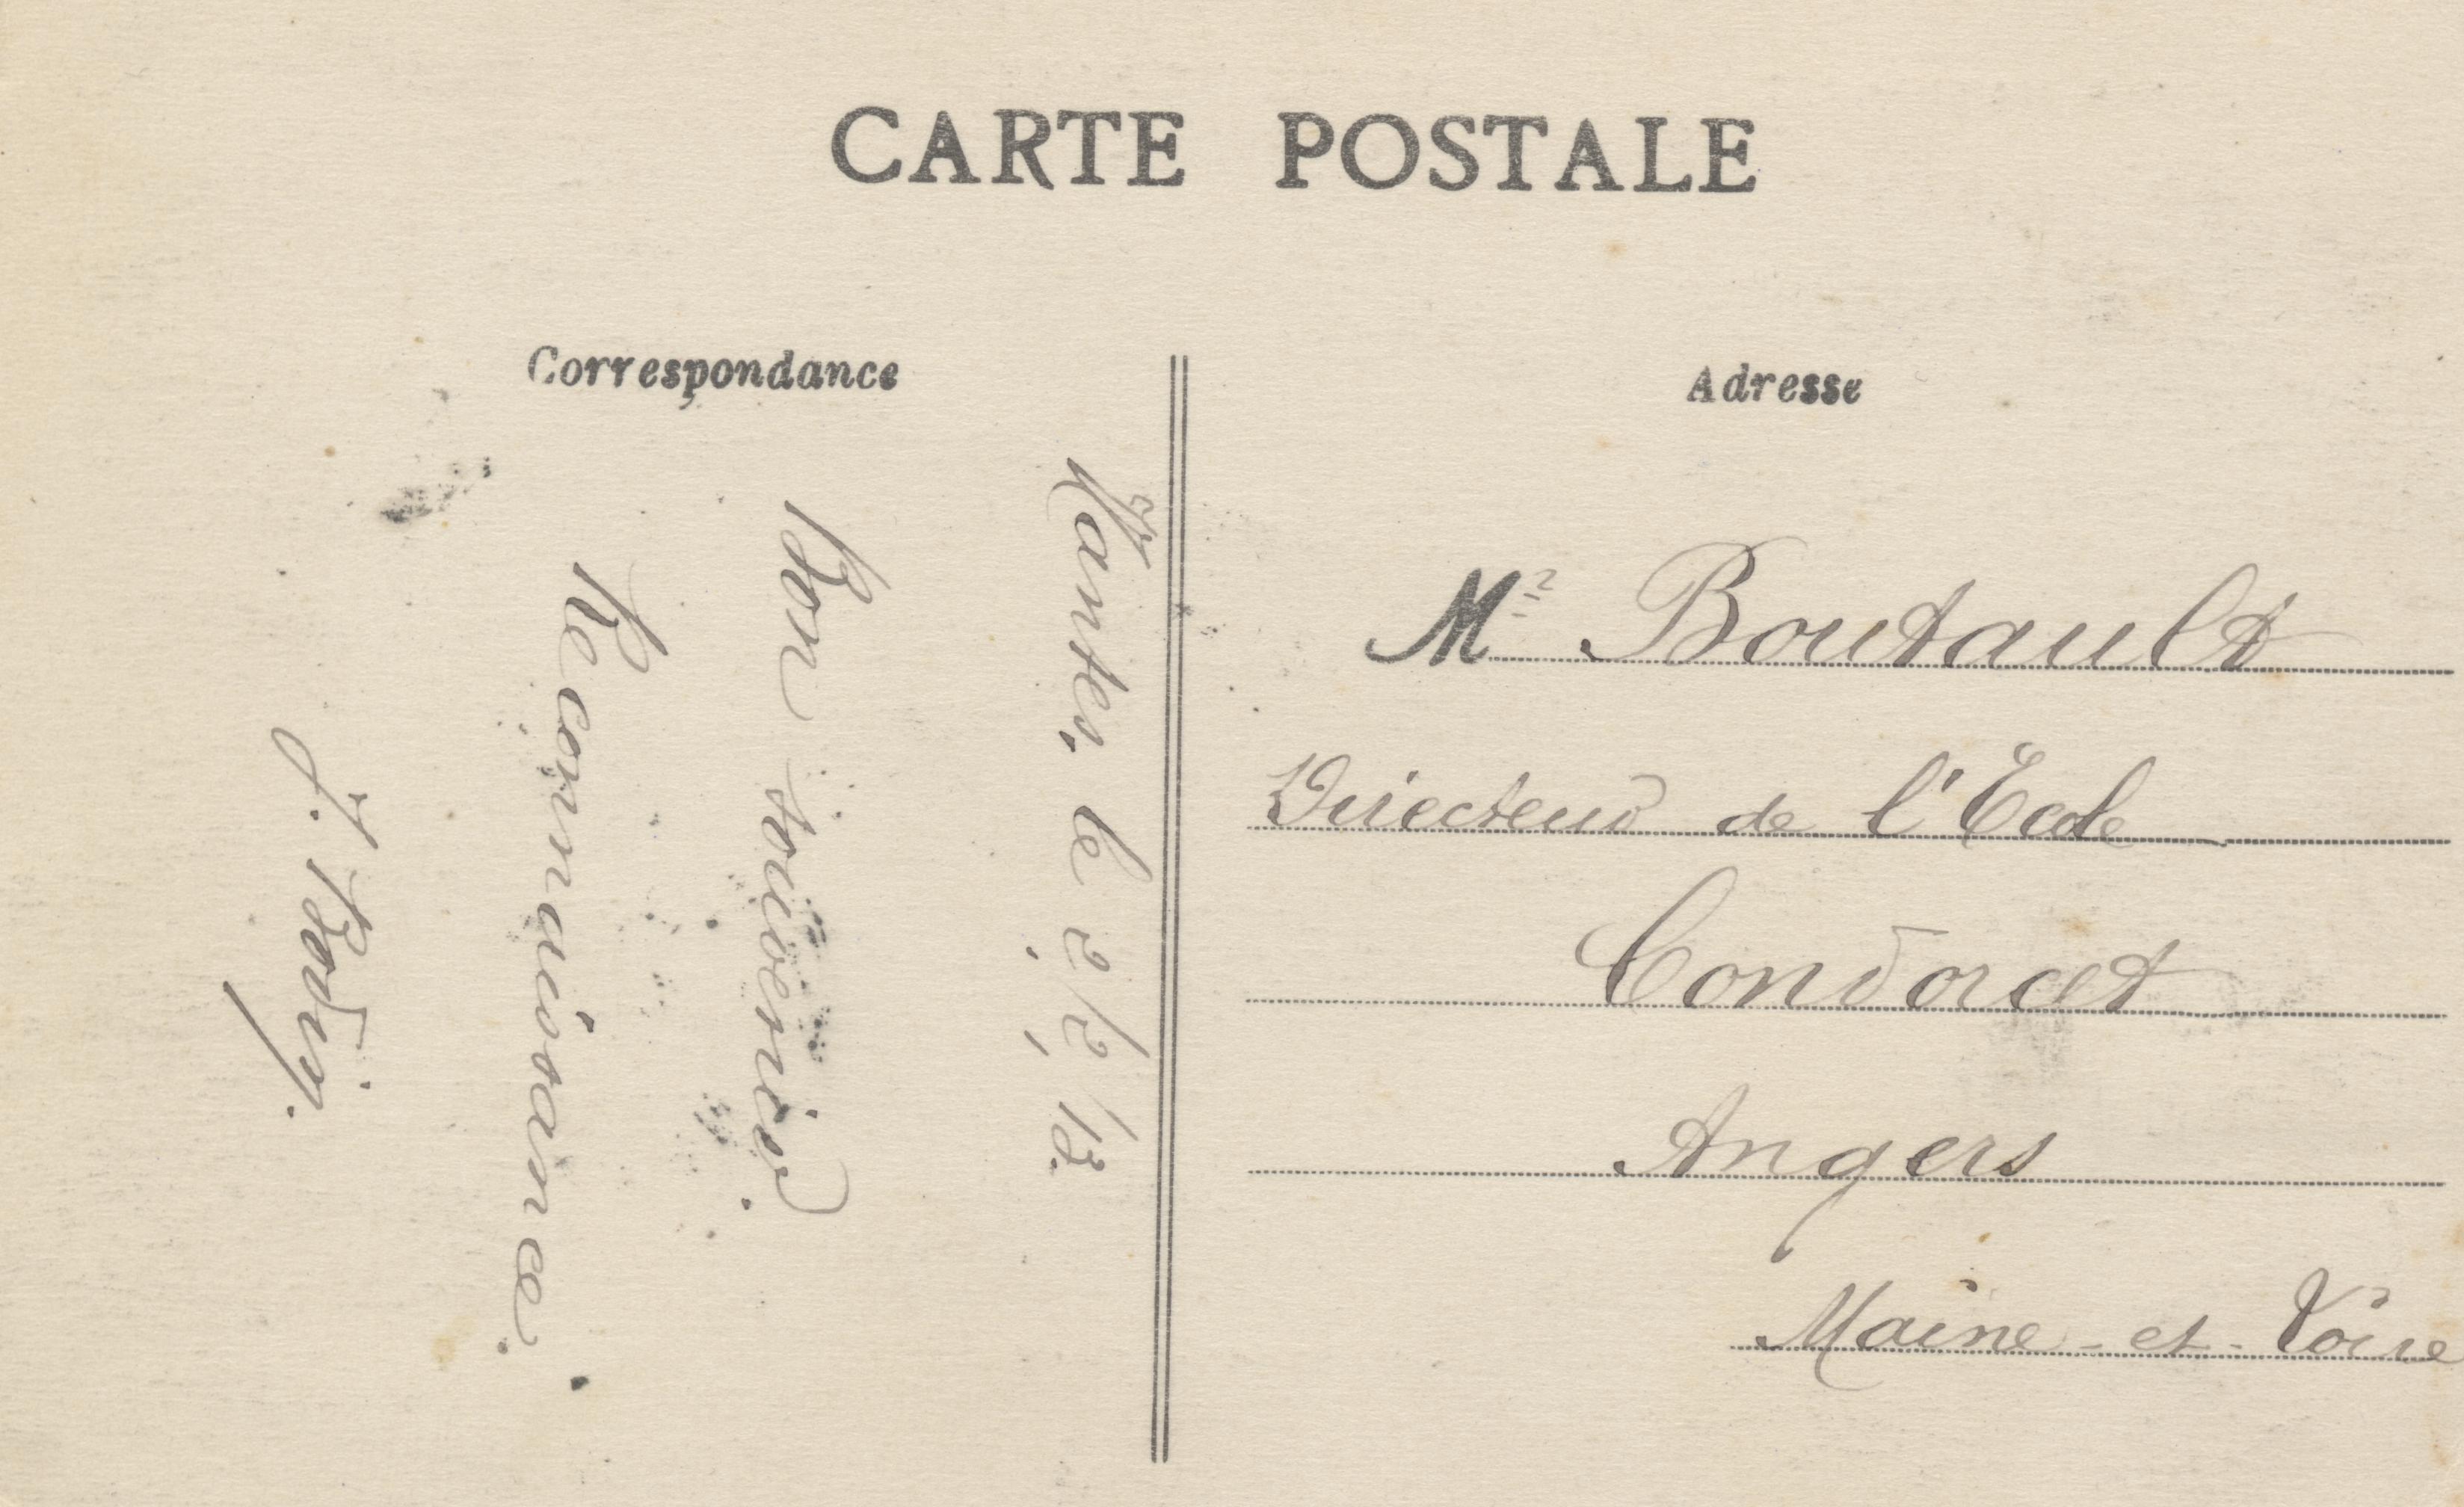 CARTE POSTALE
Correspondance
Nantes, le 2/2/13.
Bon souvenir.
Reconnaissance.
J. Bodin.
Adresse
Mr Boutault
Directeur de l'Ecole
Condorcet
Angers
Maine-et-Loire